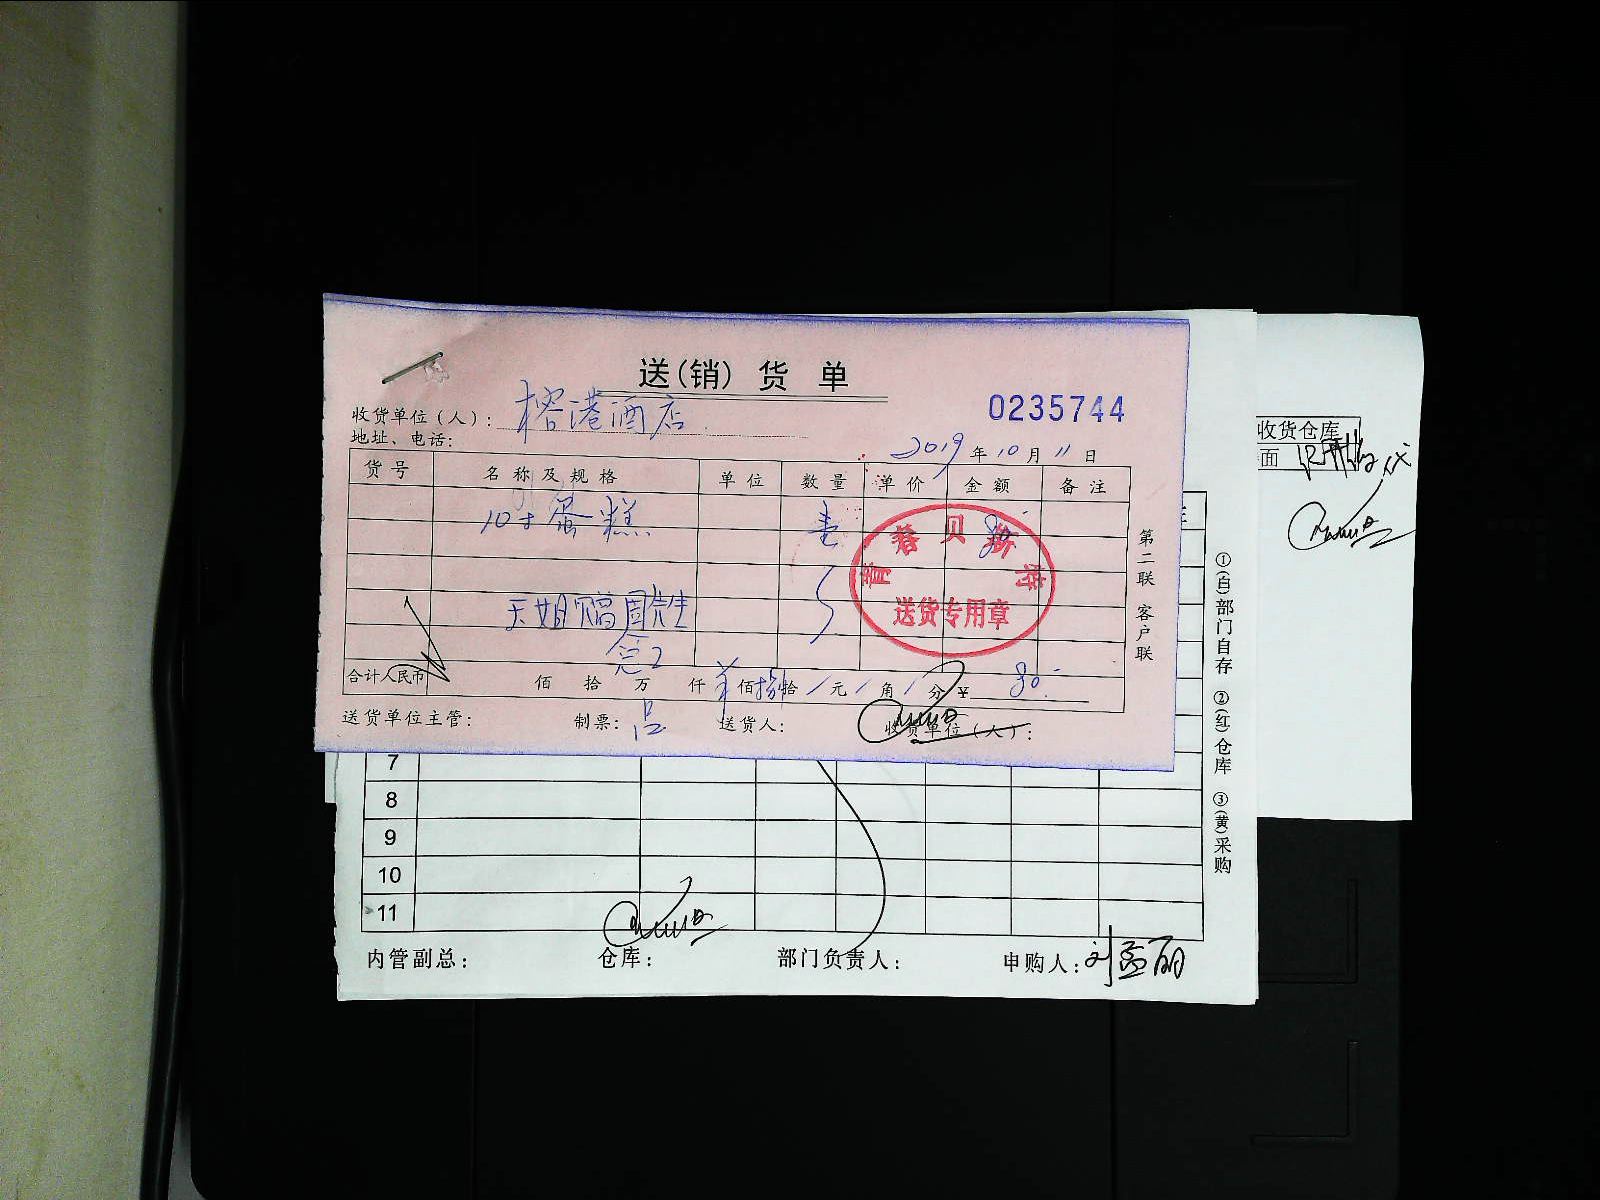 送(销)货单
0235744
收货单位(人): 榕港酒店
地址、电话:
2019年10月11日
货号 名称及规格 单位 数量 单价 金额 备注
10寸蛋糕 壹 80
青春贝斯特
送货专用章
合计人民币 佰 拾 万 仟 佰 捌拾 元 角 分 ¥ 80
送货单位主管: 制票: 送货人: 收货单位(人):
第二联 客户联
收货仓库
面
7
8
9
10
11
内管副总: 仓库: 部门负责人: 申购人:
①(白)部门自存 ②(红)仓库 ③(黄)采购